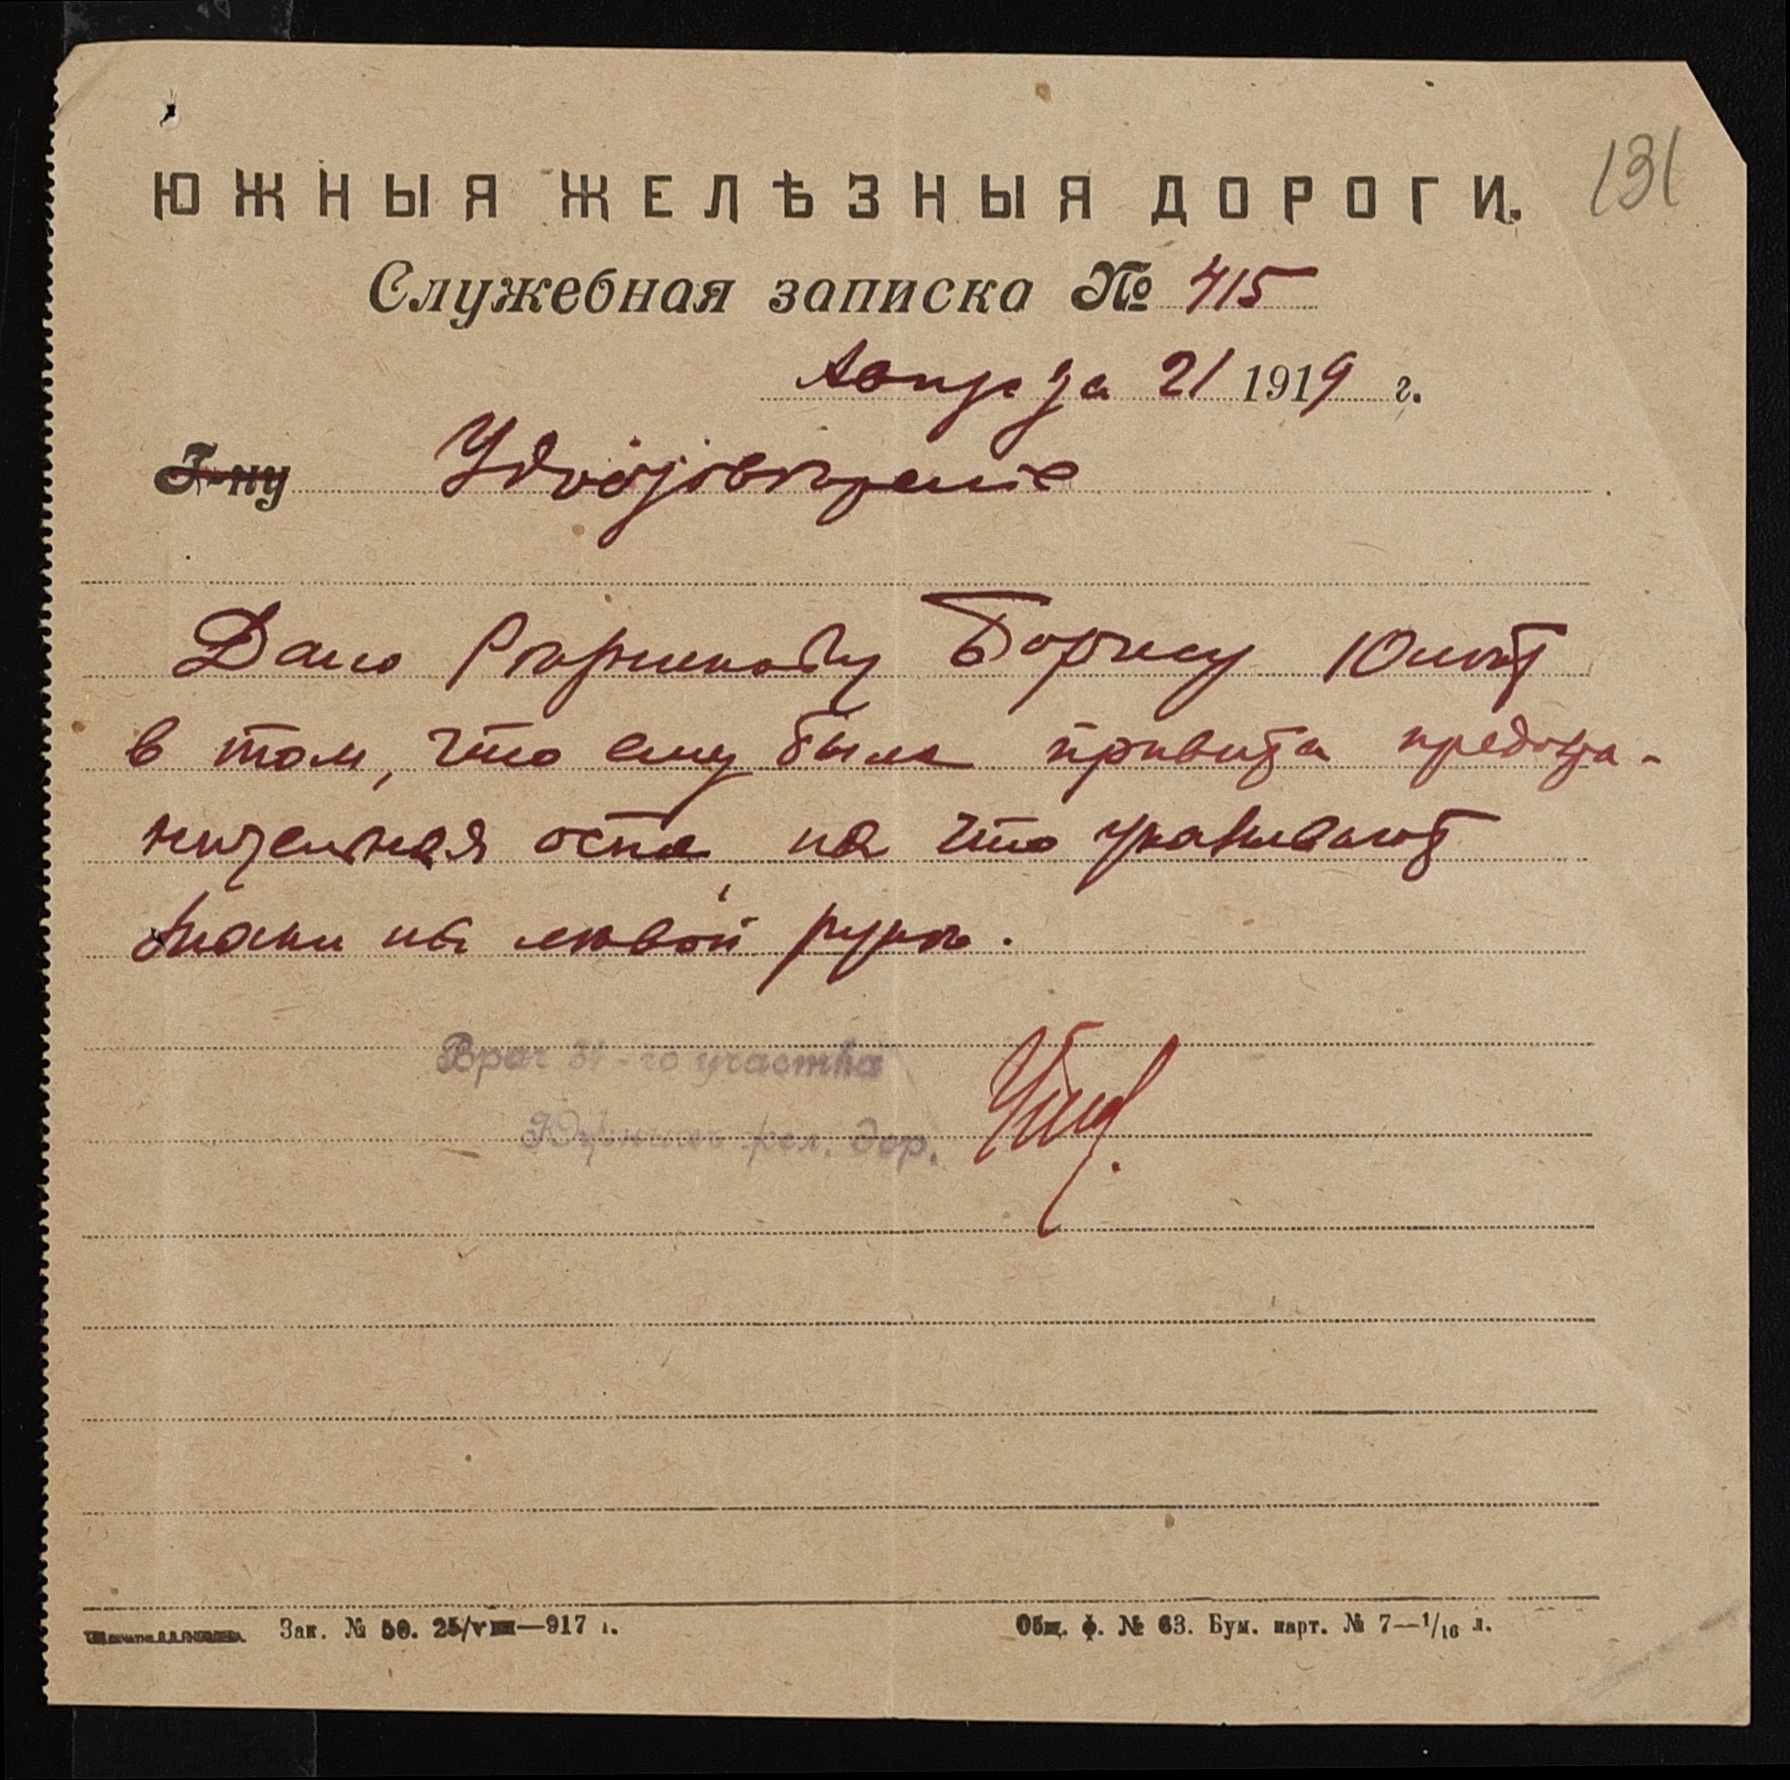 131
ЮЖНЫЯ ЖЕЛѢЗНЫЯ ДОРОГИ.
Служебная записка № 415
Августа 21 1919 г.
Г-ну Удостовѣрение
Дано Борису 10 лѣт
в том, что ему была привита предохра-
нительная оспа, на что указывают
знаки на лѣвой рукѣ.
Врач 31-го участка
Южных жел. дор.
Зак. № 50. 25/VIII—917 г.
Общ. ф. № 63. Бум. карт. № 7—1/16 л.